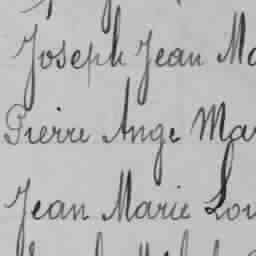 Joseph Jean Ma
Pierre Ange Mar
Jean Marie Lou